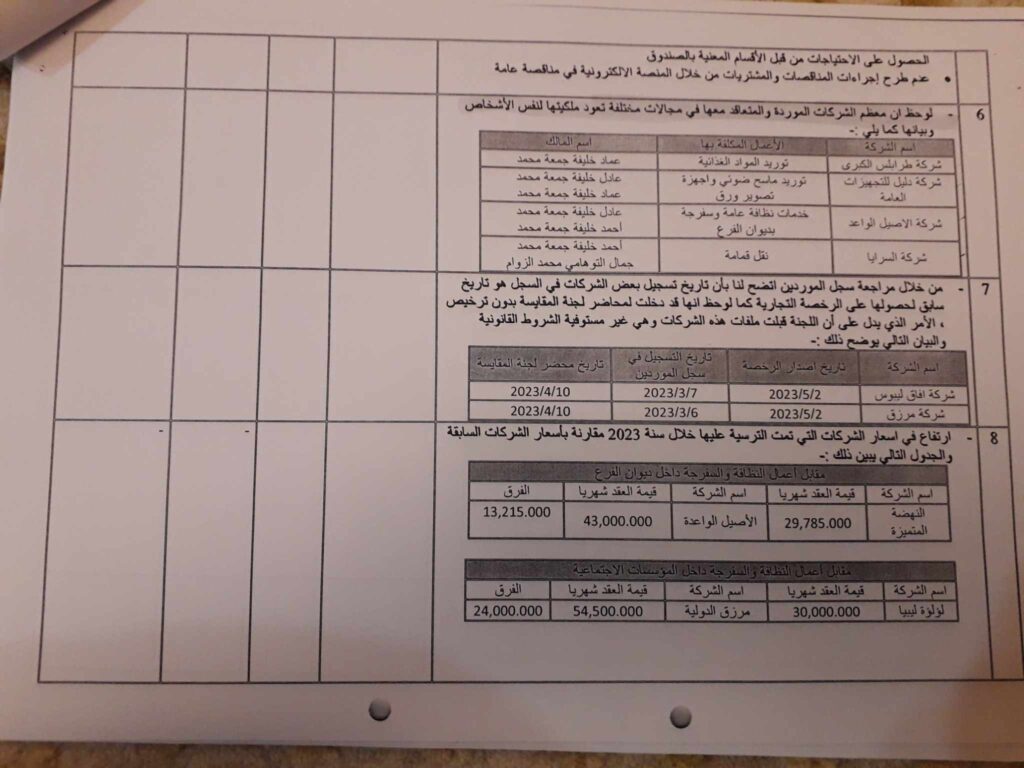 الحصول على الاحتياجات من قبل الأقسام المعنية بالصندوق
• عدم طرح إجراءات المناقصات والمشتريات من خلال المنصة الالكترونية في مناقصة عامة
6 - لوحظ ان معظم الشركات الموردة والمتعاقد معها في مجالات مختلفة تعود ملكيتها لنفس الأشخاص
وبيانها كما يلي :-
اسم الشركة الأعمال المكلفة بها اسم المالك
شركة طرابلس الكبرى توريد المواد الغذائية عماد خليفة جمعة محمد
شركة دليل للتجهيزات توريد ماسح ضوئي واجهزة عادل خليفة جمعة محمد
العامة تصوير ورق عماد خليفة جمعة محمد
شركة الاصيل الواعد خدمات نظافة عامة وسفرجة عادل خليفة جمعة محمد
بديوان الفرع أحمد خليفة جمعة محمد
شركة السرايا نقل قمامة أحمد خليفة جمعة محمد
جمال التوهامي محمد الزوام
7 - من خلال مراجعة سجل الموردين اتضح لنا بأن تاريخ تسجيل بعض الشركات في السجل هو تاريخ
سابق لحصولها على الرخصة التجارية كما لوحظ انها قد دخلت لمحاضر لجنة المقايسة بدون ترخيص
، الأمر الذي يدل على أن اللجنة قبلت ملفات هذه الشركات وهي غير مستوفية الشروط القانونية
والبيان التالي يوضح ذلك :-
اسم الشركة تاريخ اصدار الرخصة تاريخ التسجيل في سجل الموردين تاريخ محضر لجنة المقايسة
شركة افاق ليبوس 2023/5/2 2023/3/7 2023/4/10
شركة مرزق 2023/5/2 2023/3/6 2023/4/10
8 - ارتفاع في اسعار الشركات التي تمت الترسية عليها خلال سنة 2023 مقارنة بأسعار الشركات السابقة - -
والجدول التالي يبين ذلك :-
مقابل أعمال النظافة والسفرجة داخل ديوان الفرع
اسم الشركة قيمة العقد شهريا اسم الشركة قيمة العقد شهريا الفرق
النهضة المتميزة 29,785.000 الأصيل الواعدة 43,000.000 13,215.000
مقابل أعمال النظافة والسفرجة داخل المؤسسات الاجتماعية
اسم الشركة قيمة العقد شهريا اسم الشركة قيمة العقد شهريا الفرق
لؤلؤة ليبيا 30,000.000 مرزق الدولية 54,500.000 24,000.000